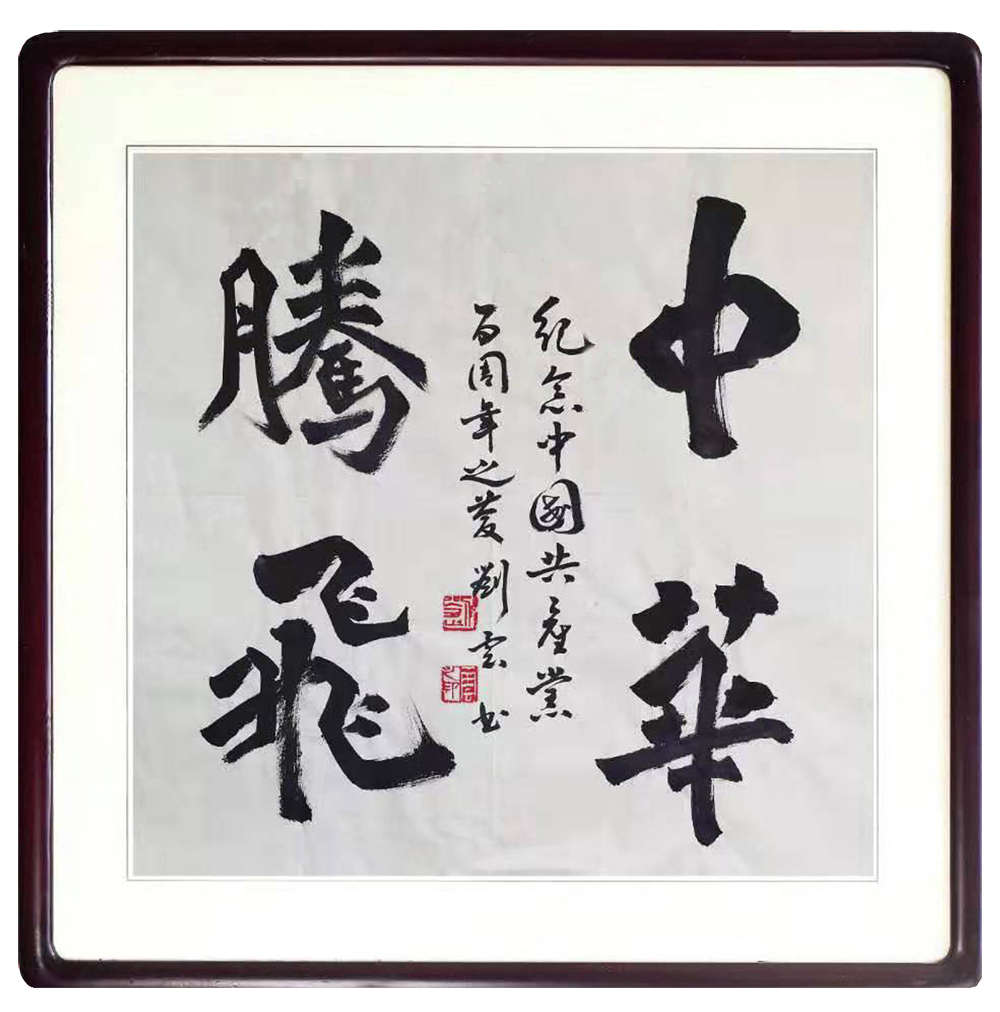 中華
騰飛
紀念中國共産黨
百周年之慶劉雲書